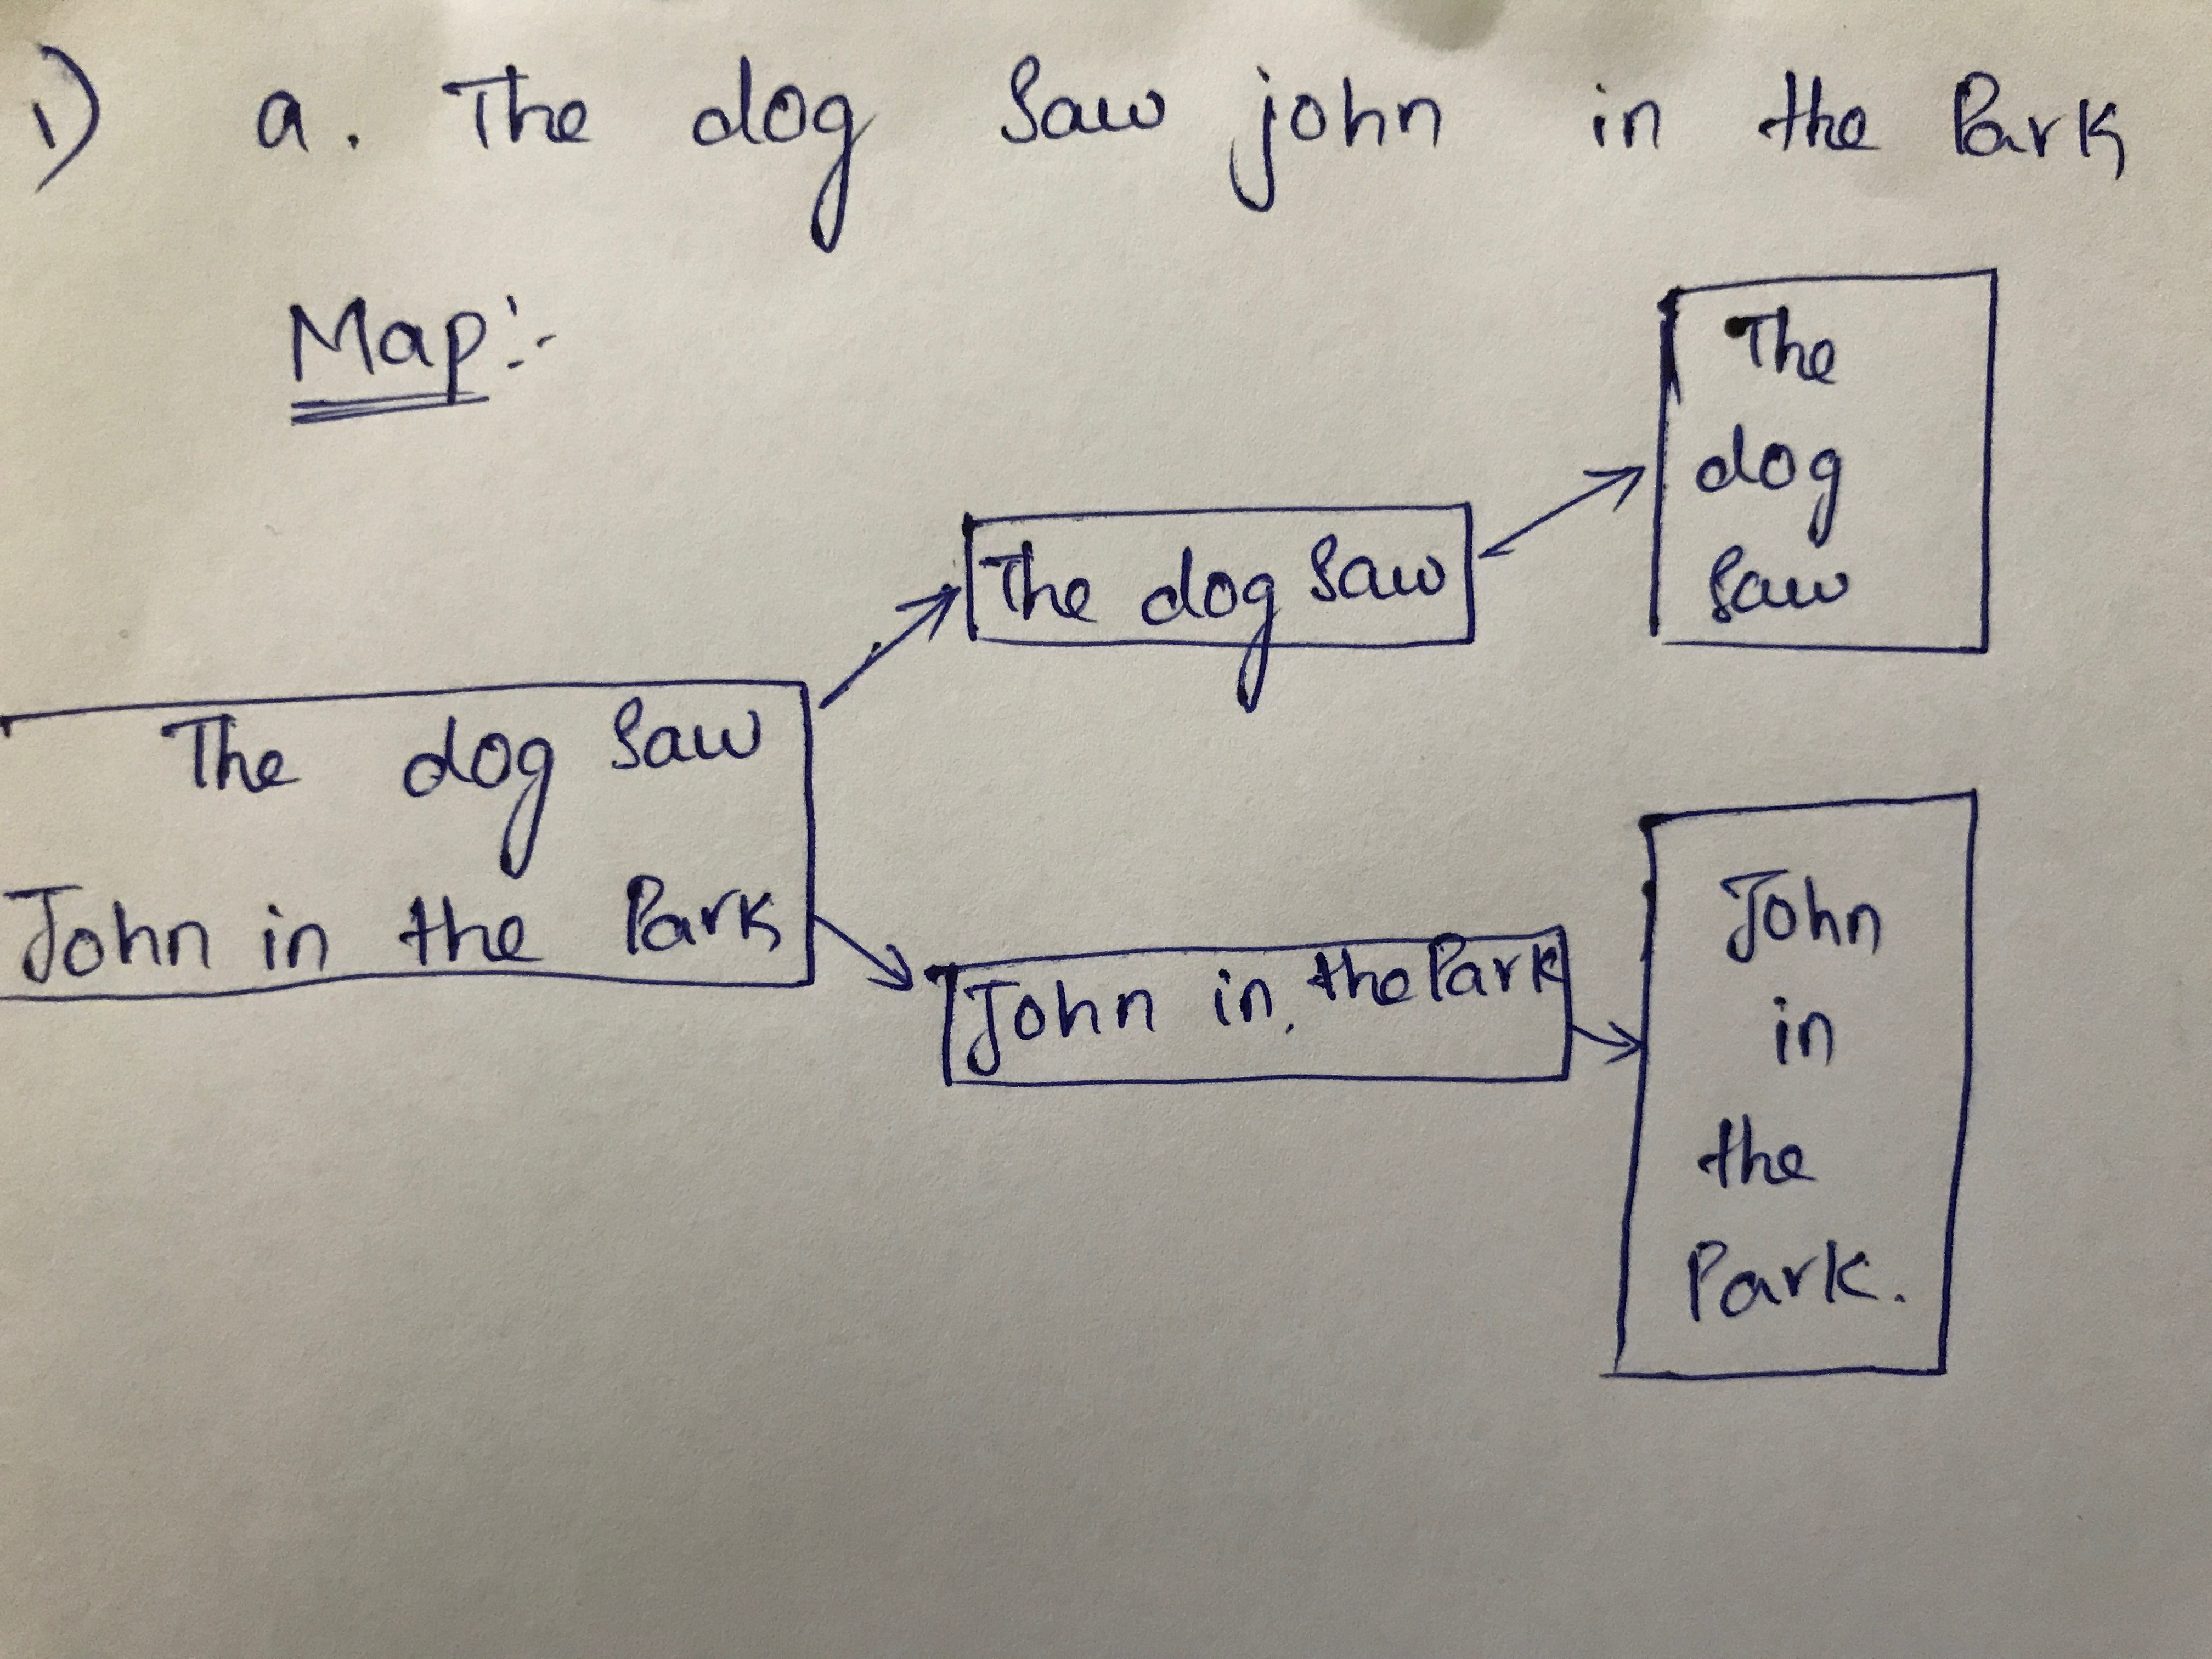 1) a. The dog saw john in the Park
Map :-
The dog saw
John in the Park
The dog saw
John in the Park
The
dog
saw
John
in
the
Park.